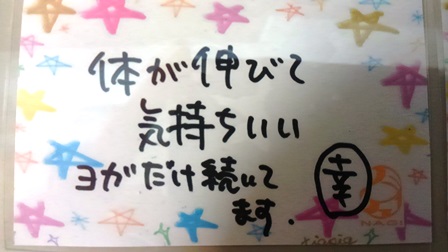 体が伸びて
気持ちいい
ヨガだけ続いて
ます.
幸
NAGI